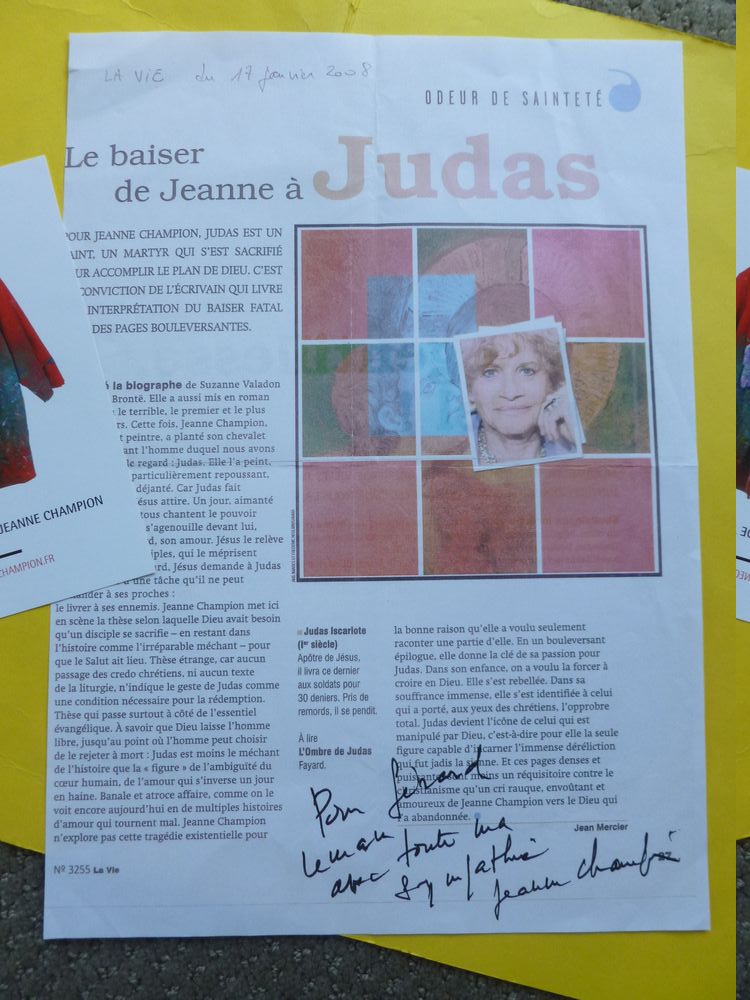 LA VIE du 17 janvier 2008
ODEUR DE SAINTETÉ
Le baiser
de Jeanne à Judas
POUR JEANNE CHAMPION, JUDAS EST UN
AINT, UN MARTYR QUI S'EST SACRIFIÉ
UR ACCOMPLIR LE PLAN DE DIEU. C'EST
CONVICTION DE L'ÉCRIVAIN QUI LIVRE
INTERPRÉTATION DU BAISER FATAL
DES PAGES BOULEVERSANTES.
à la biographe de Suzanne Valadon
Brontë. Elle a aussi mis en roman
le terrible, le premier et le plus
rs. Cette fois, Jeanne Champion,
t peintre, a planté son chevalet
ant l'homme duquel nous avons
le regard : Judas. Elle l'a peint,
particulièrement repoussant,
déjanté. Car Judas fait
ésus attire. Un jour, aimanté
tous chantent le pouvoir
s'agenouille devant lui,
d, son amour. Jésus le relève
iples, qui le méprisent
rd. Jésus demande à Judas
d'une tâche qu'il ne peut
nander à ses proches :
le livrer à ses ennemis. Jeanne Champion met ici
en scène la thèse selon laquelle Dieu avait besoin
qu'un disciple se sacrifie – en restant dans
l'histoire comme l'irréparable méchant – pour
que le Salut ait lieu. Thèse étrange, car aucun
passage des credo chrétiens, ni aucun texte
de la liturgie, n'indique le geste de Judas comme
une condition nécessaire pour la rédemption.
Thèse qui passe surtout à côté de l'essentiel
évangélique. À savoir que Dieu laisse l'homme
libre, jusqu'au point où l'homme peut choisir
de le rejeter à mort : Judas est moins le méchant
de l'histoire que la « figure » de l'ambiguïté du
cœur humain, de l'amour qui s'inverse un jour
en haine. Banale et atroce affaire, comme on le
voit encore aujourd'hui et de multiples histoires
d'amour qui tournent mal. Jeanne Champion
n'explore pas cette tragédie existentielle pour
Judas Iscariote
(Ier siècle)
Apôtre de Jésus,
il livra ce dernier
aux soldats pour
30 deniers. Pris de
remords, il se pendit.
À lire
L'Ombre de Judas
Fayard.
la bonne raison qu'elle a voulu seulement
raconter une partie d'elle. En un bouleversant
épilogue, elle donne la clé de sa passion pour
Judas. Dans son enfance, on a voulu la forcer à
croire en Dieu. Elle s'est rebellée. Dans sa
souffrance immense, elle s'est identifiée à celui
qui a porté, aux yeux des chrétiens, l'opprobre
total. Judas devient l'icône de celui qui est
manipulé par Dieu, c'est-à-dire pour elle la seule
figure capable d'incarner l'immense déréliction
qui fut jadis la sienne. Et ces pages denses et
puissantes sont moins un réquisitoire contre le
christianisme qu'un cri rauque, envoûtant et
amoureux de Jeanne Champion vers le Dieu qui
l'a abandonnée.
Jean Mercier
Pour Gérard
Leman
avec toute ma
Sympathie
Jeanne Champion
Nº 3255 La Vie
JEANNE CHAMPION
CHAMPION.FR